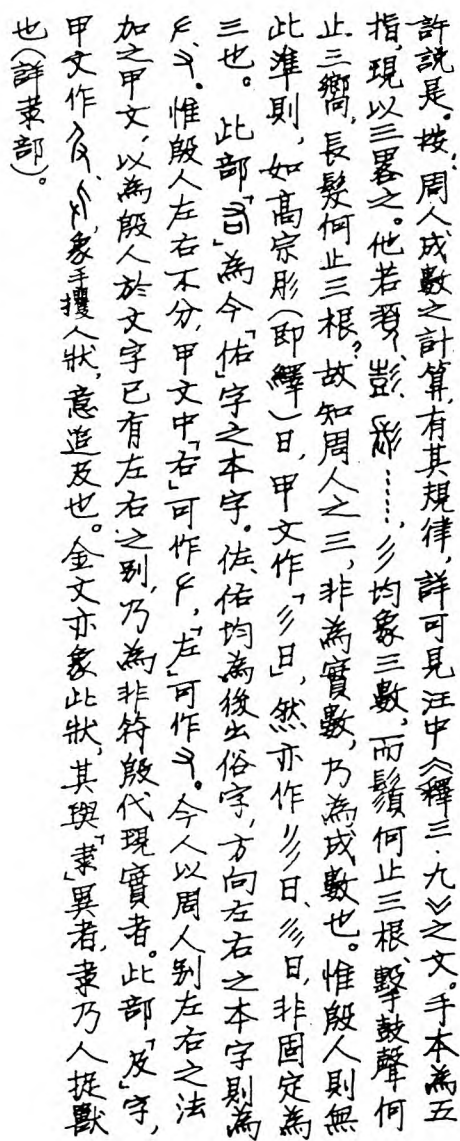 許說是。按:周人成數之計算,有其規律,詳可見汪中《釋三·九》之文。手本為五
指,現以三畧之。他若須、彭、……,彡均象三數,而鬚何止三根、擊鼓聲何
止三嚮,長髮何止三根?故知周人之三,非為實數,乃為成數也。惟殷人則無
此準則,如高宗肜(即繹)日,甲文作「彡日」,然亦作彡日、彡日,非固定為
三也。 此部「右」為今「佑」字之本字。佐、佑均為後出俗字,方向左右之本字則為
𠂇、又。惟殷人左右不分,甲文中「右」可作𠂇,「左」可作又。今人以周人別左右之法
加之甲文,以為殷人於文字已有左右之別,乃為非符殷代現實者。此部「及」字,
甲文作、,象手攫人狀,意追及也。金文亦象此狀,其與「隶」異者,隶乃人捉獸
也(詳隶部)。